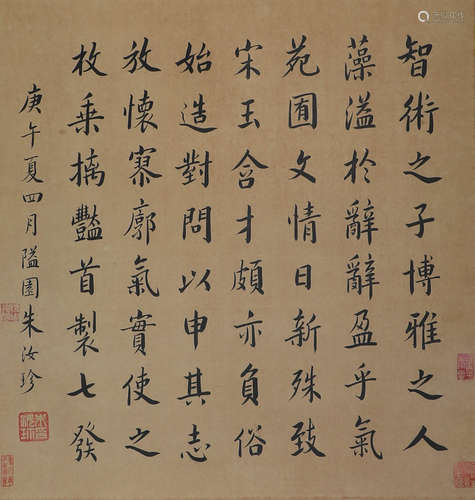 智術之子博雅之人
藻溢於辭辭盈乎氣
苑囿文情日新殊致
宋玉含才頗亦負俗
始造對問以申其志
放懷寥廓氣實使之
枚乘摛豔首製七發
庚午夏四月隘園朱汝珍